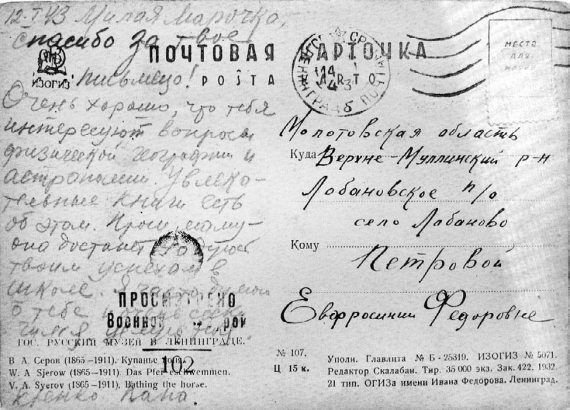 12-I 43 Милая Марочка,
спасибо за твое
письмецо!
Очень хорошо, что тебя
интересуют вопросы
физической географии и
астрономии. Увлека-
тельные книги есть
об этом. Проси маму-
она достанет
твоим успехам в
школе. Я
о тебе
Папа.
ИЗОГИЗ
ПОЧТОВАЯ КАРТОЧКА
POŜTA KARTO
ЛЕНИНГРАД ПОЧТАМТ
14 1
43
МЕСТО
ДЛЯ
МАРКИ
Молотовская область
Куда Верхне-Муллинский р-н
Лобановское п/о
село Лобаново
Кому
Петровой
Евфросинии Федоровне
ПРОСМОТРЕНО
Военной Цензурой
102
ГОС. РУССКИЙ МУЗЕЙ В ЛЕНИНГРАДЕ.
В. А. Серов (1865—1911). Купанье лошади.
W. A. Sjerow (1865—1911). Das Pferdeschwemmen.
V. A. Syerov (1865—1911). Bathing the horse.
№ 107.
Ц 15 к.
Уполн. Главлита № Б - 25319. ИЗОГИЗ № 5071.
Редактор Скалабан. Тир. 35 000 экз. Зак. 422. 1932.
21 тип. ОГИЗа имени Ивана Федорова. Ленинград.